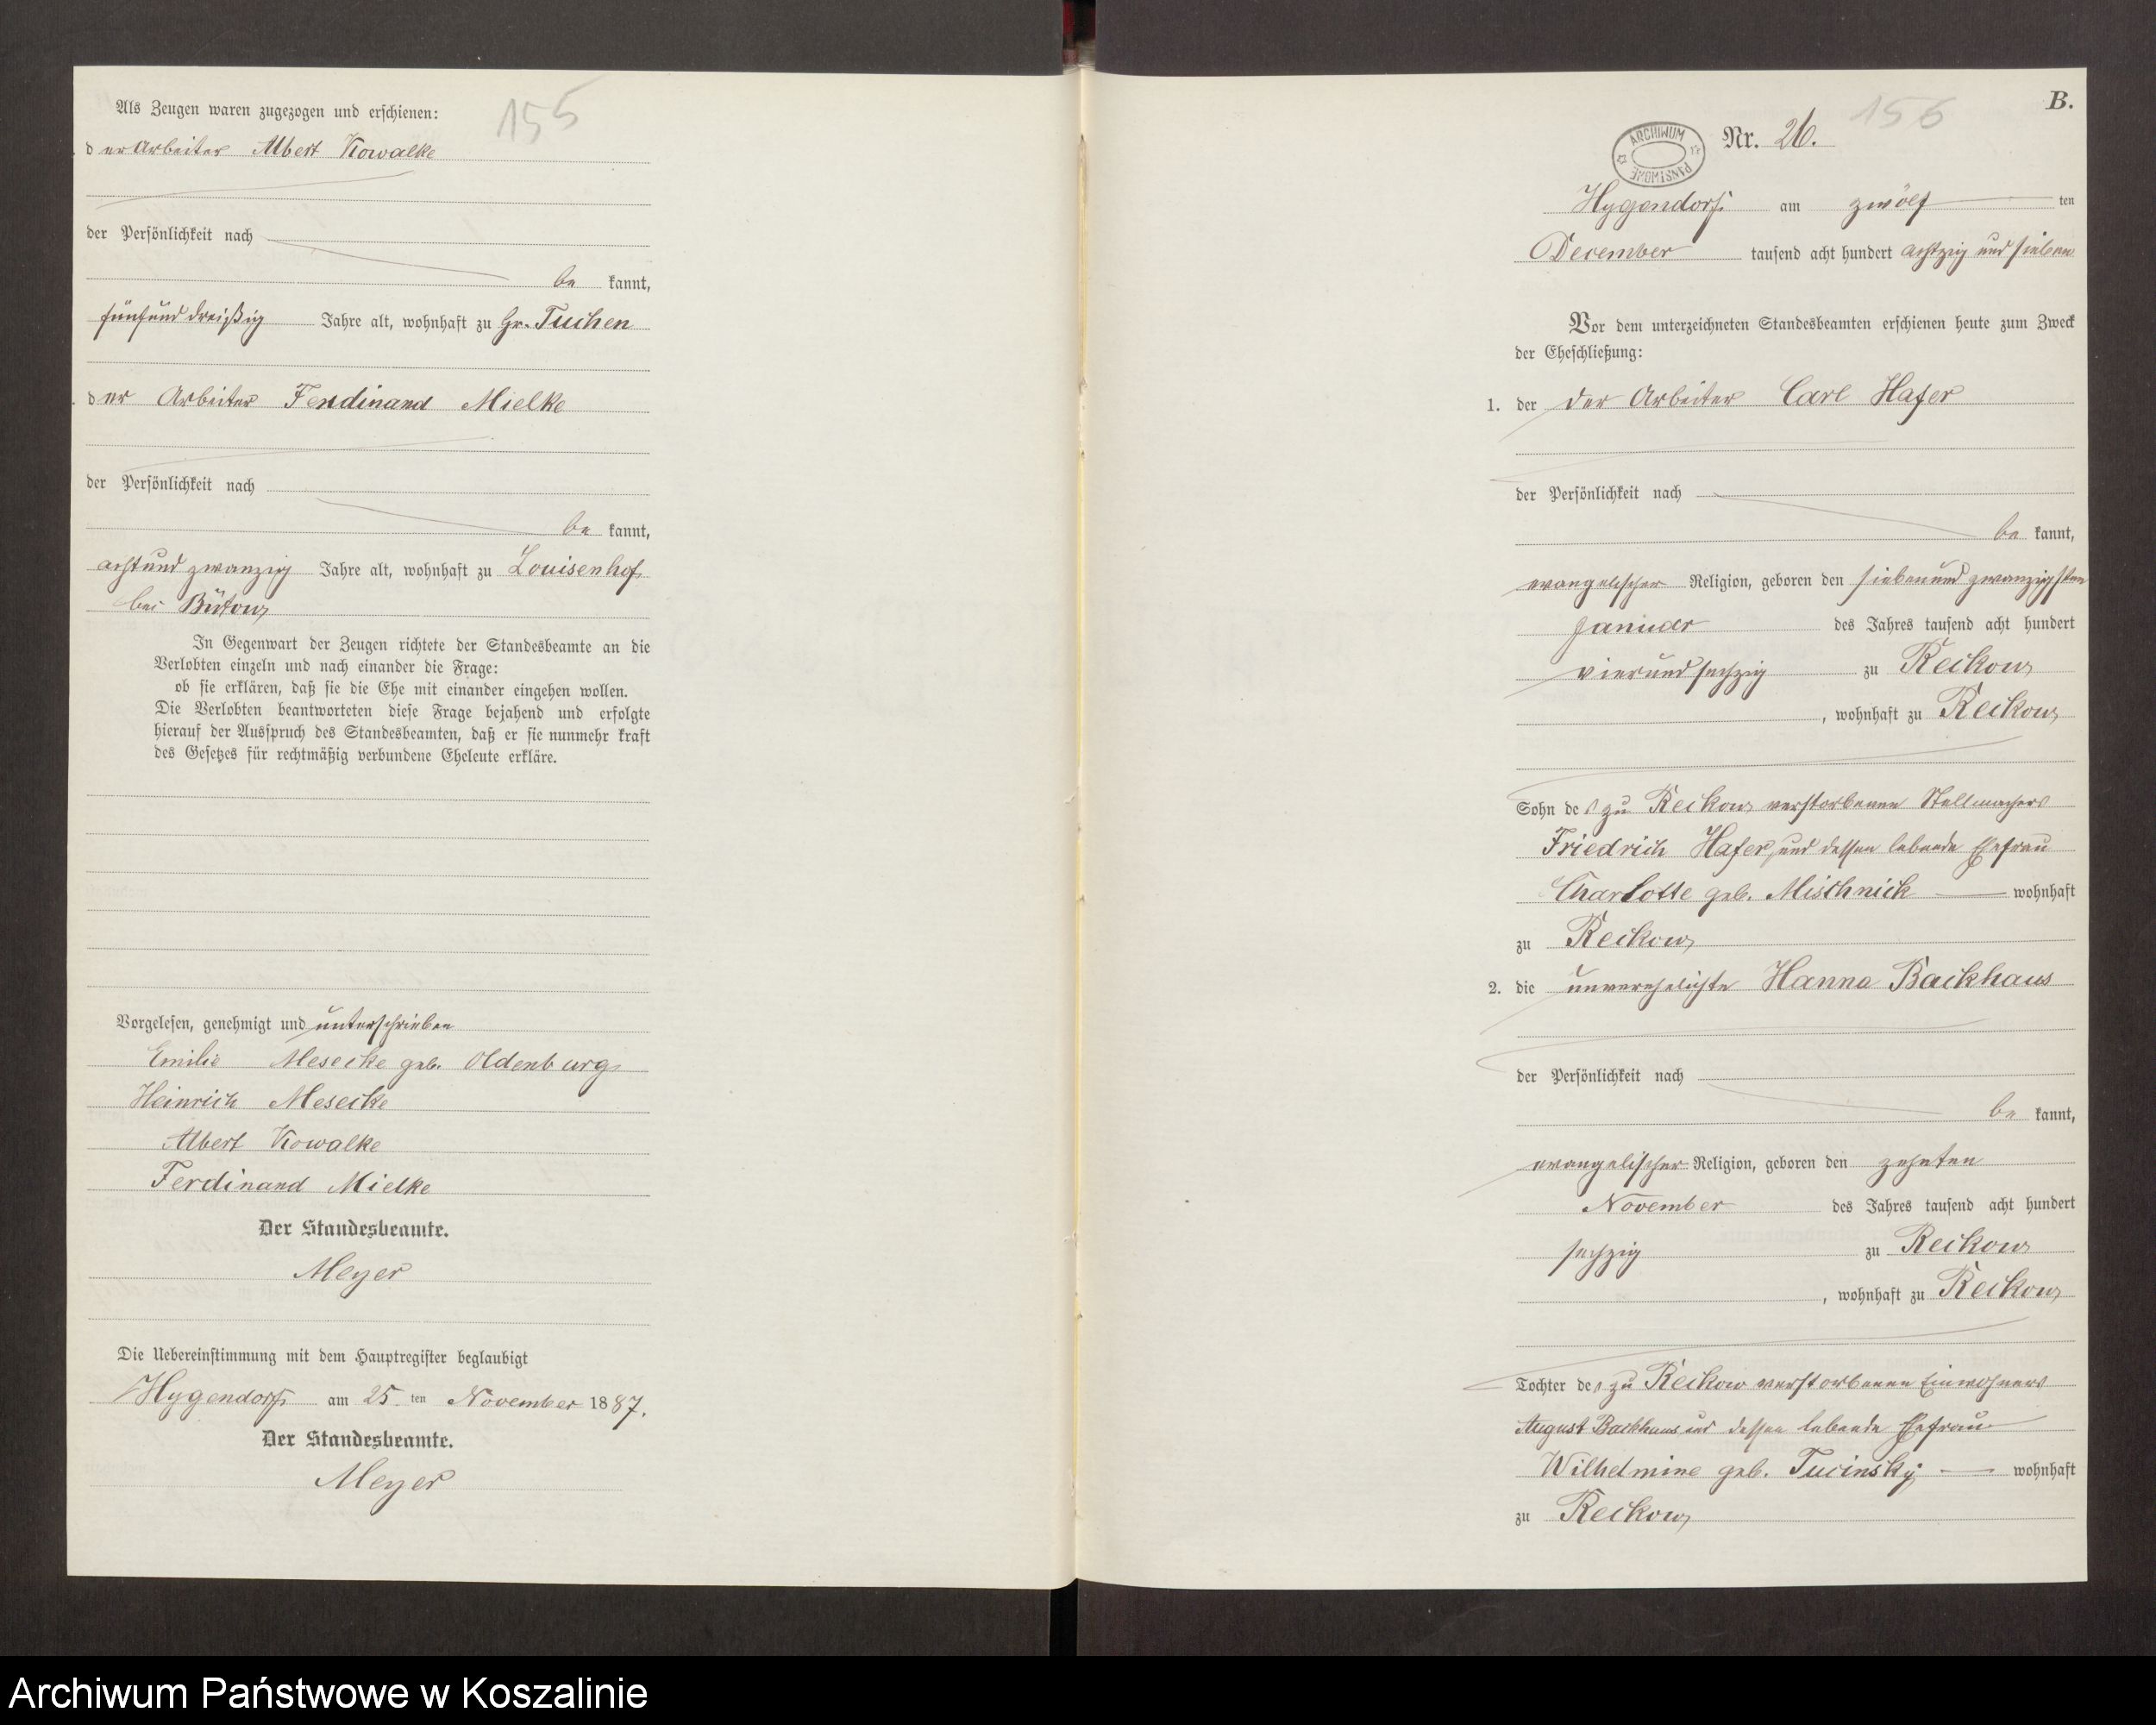 155
Als Zeugen waren zugezogen und erschienen:
der Arbeiter Albert Kowalke
der Persönlichkeit nach
be kannt,
fünfunddreißig Jahre alt, wohnhaft zu Gr. Tuchen
der Arbeiter Ferdinand Mielke
der Persönlichkeit nach
be kannt,
achtundzwanzig Jahre alt, wohnhaft zu Louisenhof
bei Bütow
In Gegenwart der Zeugen richtete der Standesbeamte an die
Verlobten einzeln und nach einander die Frage:
ob sie erklären, daß sie die Ehe mit einander eingehen wollen.
Die Verlobten beantworteten diese Frage bejahend und erfolgte
hierauf der Ausspruch des Standesbeamten, daß er sie nunmehr kraft
des Gesetzes für rechtmäßig verbundene Eheleute erkläre.
Vorgelesen, genehmigt und unterschrieben
Emilie Mesecke geb. Oldenburg
Heinrich Mesecke
Albert Kowalke
Ferdinand Mielke
Der Standesbeamte.
Meyer
Die Uebereinstimmung mit dem Hauptregister beglaubigt
Hygendorf am 25 ten November 1887.
Der Standesbeamte.
Meyer
B.
156
ARCHIWUM PAŃSTWOWE
Nr. 26.
Hygendorf am zwölf ten
December tausend acht hundert achtzig und sieben
Vor dem unterzeichneten Standesbeamten erschienen heute zum Zweck
der Eheschließung:
1. der der Arbeiter Carl Hafer
der Persönlichkeit nach
be kannt,
evangelischer Religion, geboren den siebenundzwanzigsten
Januar des Jahres tausend acht hundert
vierundsechzig zu Reckow
, wohnhaft zu Reckow
Sohn des zu Reckow verstorbenen Stellmachers
Friedrich Hafer, und dessen lebende Ehefrau
Charlotte geb. Mischnick wohnhaft
zu Reckow
2. die unverehelichte Hanna Backhaus
der Persönlichkeit nach
be kannt,
evangelischer Religion, geboren den zehnten
November des Jahres tausend acht hundert
sechzig zu Reckow
, wohnhaft zu Reckow
Tochter des zu Reckow verstorbenen Einwohners
August Backhaus und dessen lebende Ehefrau
Wilhelmine geb. Tucinsky wohnhaft
zu Reckow
Archiwum Państwowe w Koszalinie